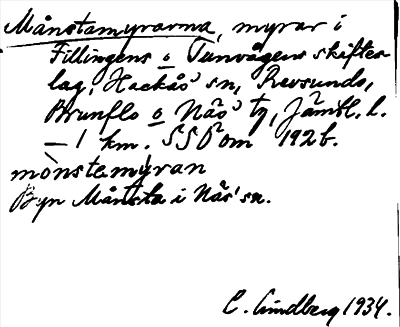 Månstamyrarna, myrar i
Fillingens o Tunvågens skiftes-
lag, Hackås' sn, Revsunds,
Brunflo o Näs' tg, Jämtl. l.
– 1 km. SSO om 192 b.
mònstamýran
Byn Månsta i Näs' sn.
C. Lindberg 1934.